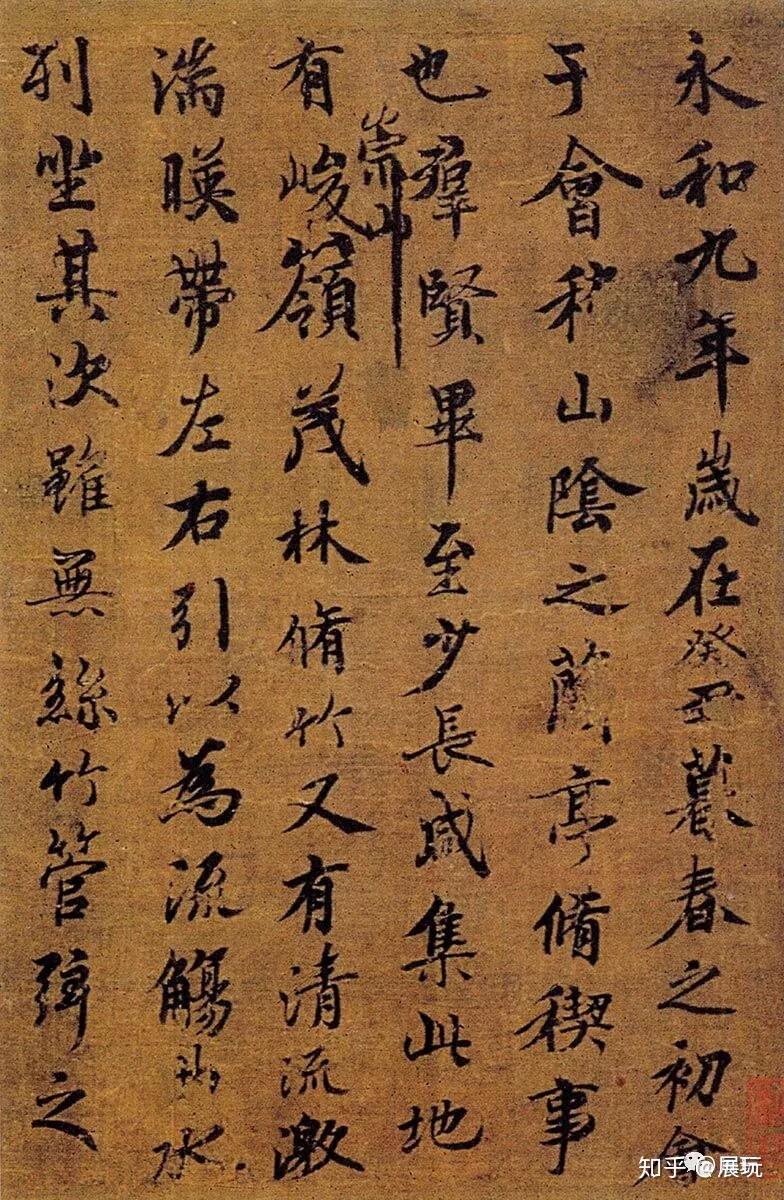 永和九年歲在癸丑暮春之初會
于會稽山陰之蘭亭脩稧事
也羣賢畢至少長咸集此地
有崇山峻嶺茂林脩竹又有清流激
湍暎帶左右引以為流觴曲水
列坐其次雖無絲竹管弦之
知乎 @展玩